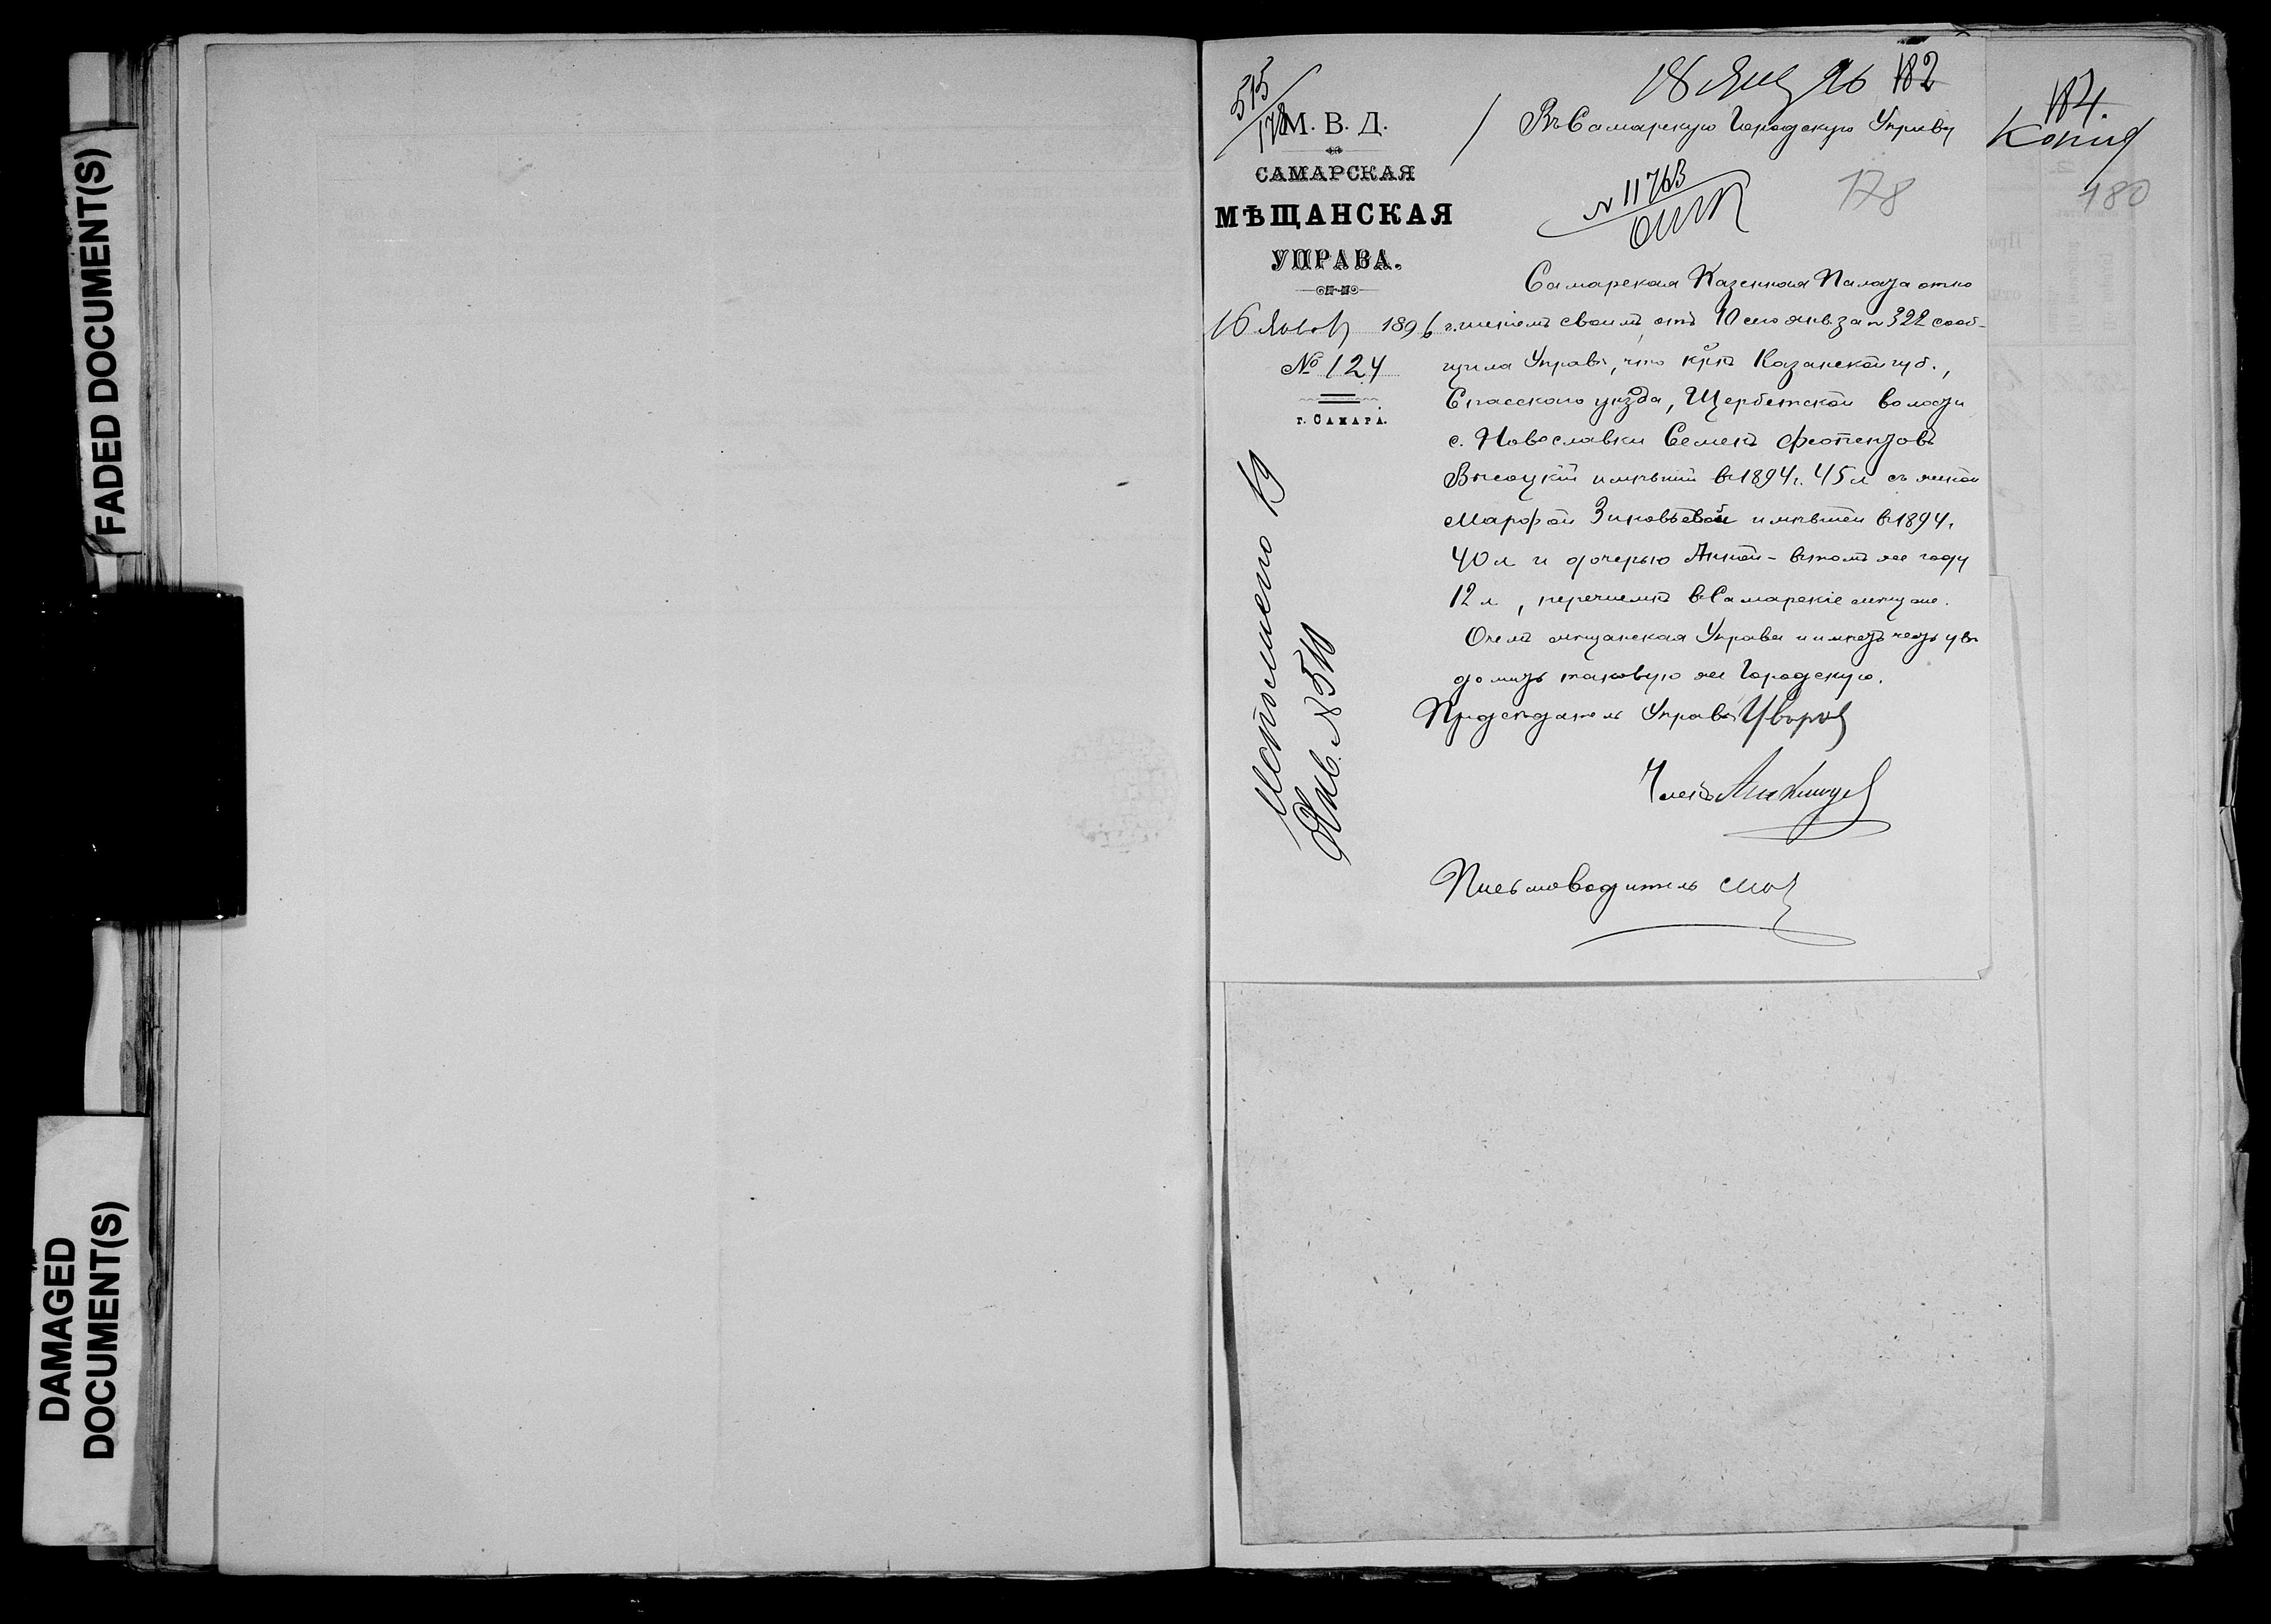 FADED DOCUMENT(S)
DAMAGED
DOCUMENT(S)
515
178
М. В. Д.
САМАРСКАЯ
МѢЩАНСКАЯ
УПРАВА.
16 Янв 1896 г.
№ 124
г. САМАРА.
Исполнено 19
Янв. № 510
18 Янв 96 182
Въ Самарскую Городскую Управу
N 11763
178
Самарская Казенная Палата отно
шеніемъ своимъ, отъ 10 сего янв. за N 322 сооб-
щила Управѣ, что кр-нъ Казанской губ.,
Спасскаго уѣзда, Щербетской волости
с. Новославки Семенъ Феопентовъ
Высоцкій имѣвшій въ 1894 г. 45 л съ женой
Марфой Зиновьевой имѣвшей въ 1894,
40 л и дочерью Анной - въ томъ же году
12 л, перечисленъ въ Самарскіе мѣщане.
О чемъ мѣщанская Управа и имѣетъ честь увѣ
домить таковую же Городскую.
Предсѣдатель Управы Уваровъ
Членъ
Письмоводитель
184.
Копия
180